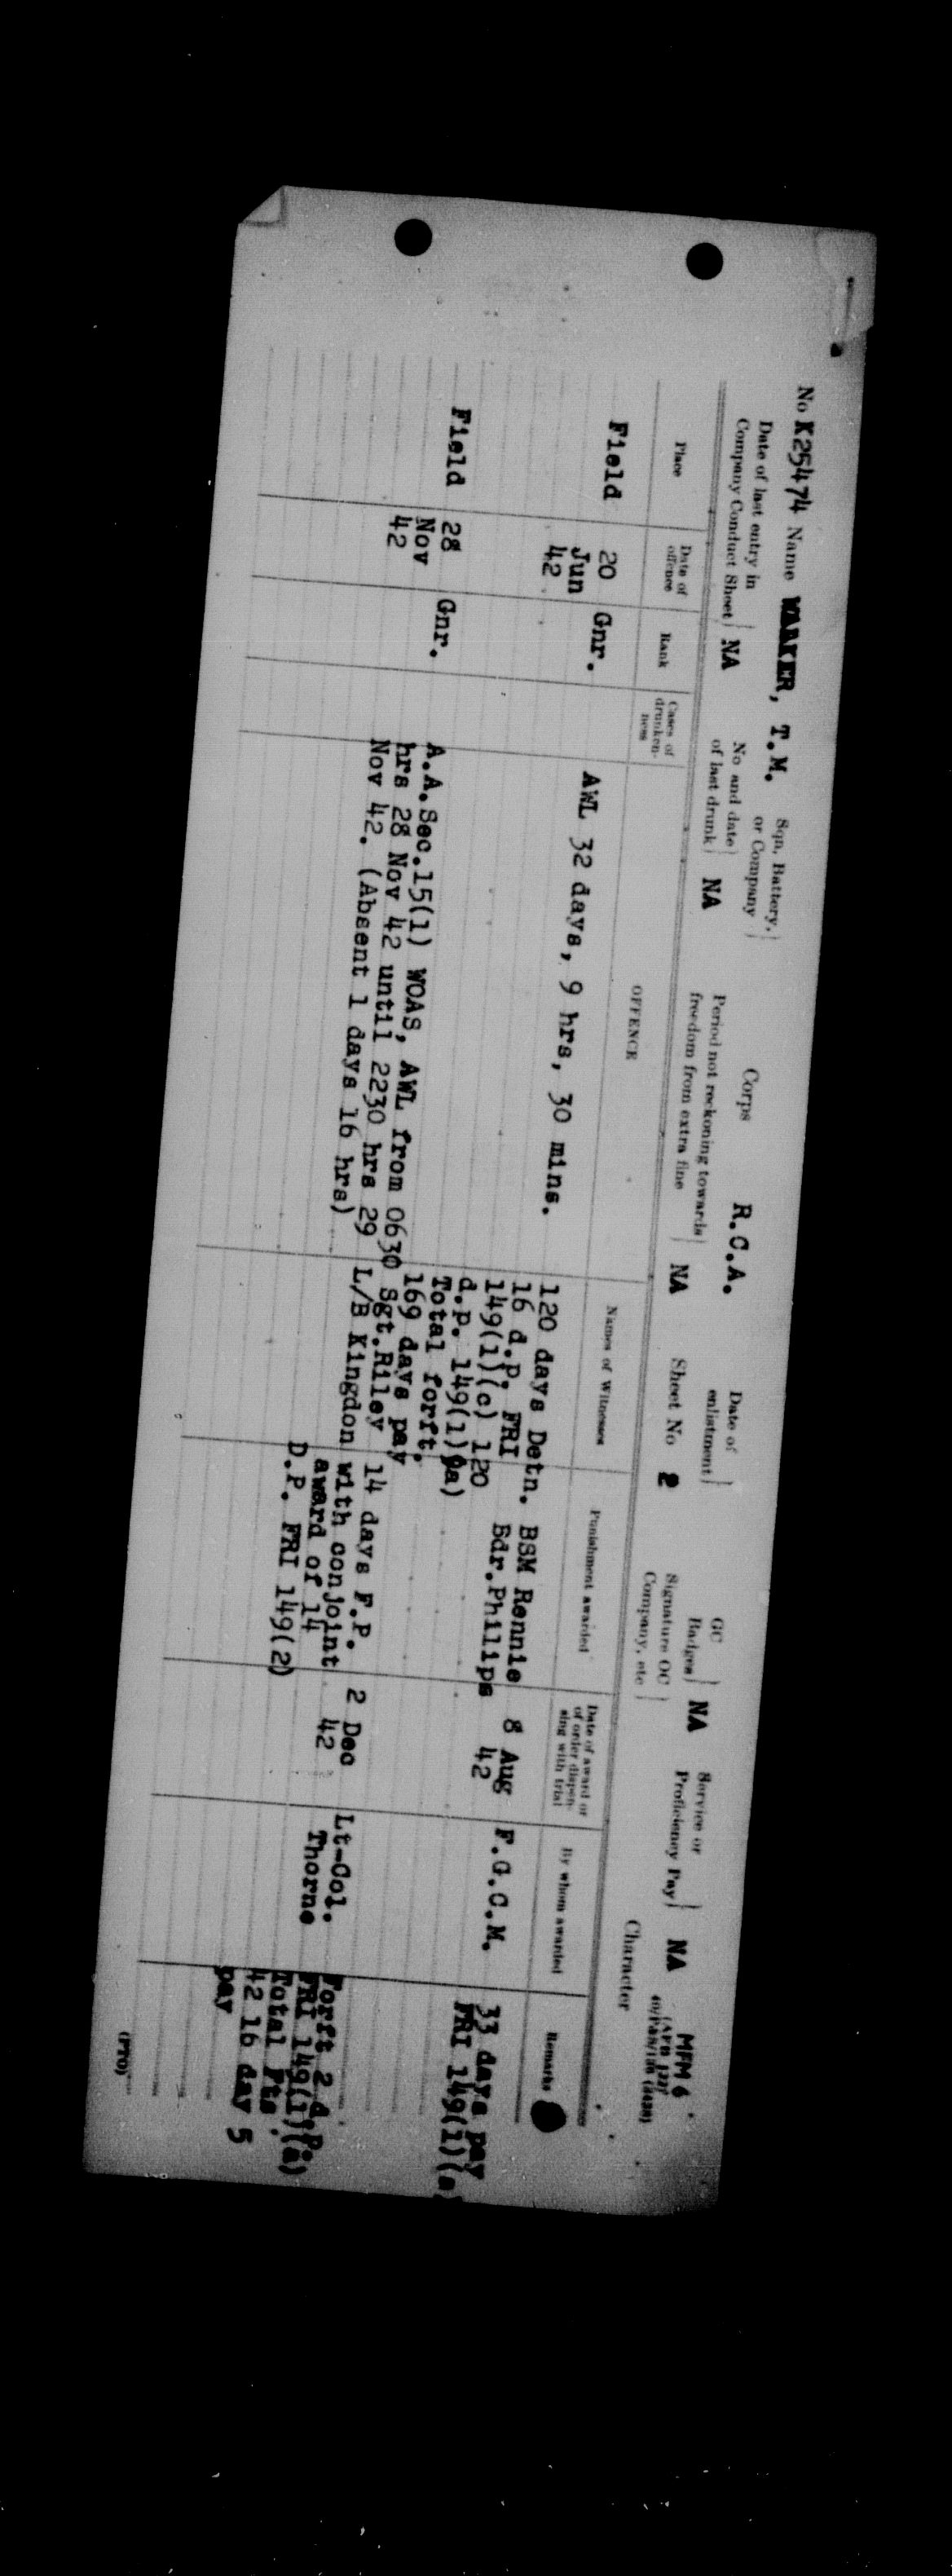 No K25474 Name WALKER, T.M. Sqn, Battery, or Company Corps R.C.A. Date of enlistment GC Badges NA Service or Proficiency Pay NA MFM 6
Date of last entry in Company Conduct Sheet NA No and date of last drunk NA Period not reckoning towards freedom from extra fine NA Sheet No 2 Signature OC Company, etc Character
Place Date of offence Rank Cases of drunken-ness OFFENCE Names of Witnesses Punishment awarded Date of award or of order dispen-sing with trial By whom awarded Remarks
Field 20 Jun 42 Gnr. AWL 32 days, 9 hrs, 30 mins.
120 days Detn.
16 d.p. FRI
149(1)(c) 120
d.p. 149(1)(a)
Total forft.
169 days pay
BSM Rennie
Bdr. Phillips
8 Aug 42
F.G.C.M.
33 days pay
FRI 149(1)(a)
Field 28 Nov 42 Gnr.
A.A.Sec.15(1) WOAS, AWL from 0630
hrs 28 Nov 42 until 2230 hrs 29
Nov 42. (Absent 1 days 16 hrs)
Sgt.Riley
L/B Kingdon
14 days F.P.
with conjoint
award of 14
D.P. FRI 149(2)
2 Dec 42
Lt-Col.
Thorne
Forft 2 d.p.
FRI 149(1)(a)
Total Pts
42 16 day 5
pay
(PTO)